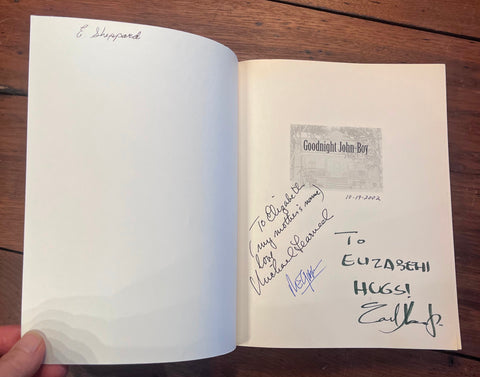 E Sheppard
Goodnight John-Boy
10-19-2002
To Elizabeth
(my mother's name)
Love
Michael Learned
To
ELIZABEHI
HUGS!